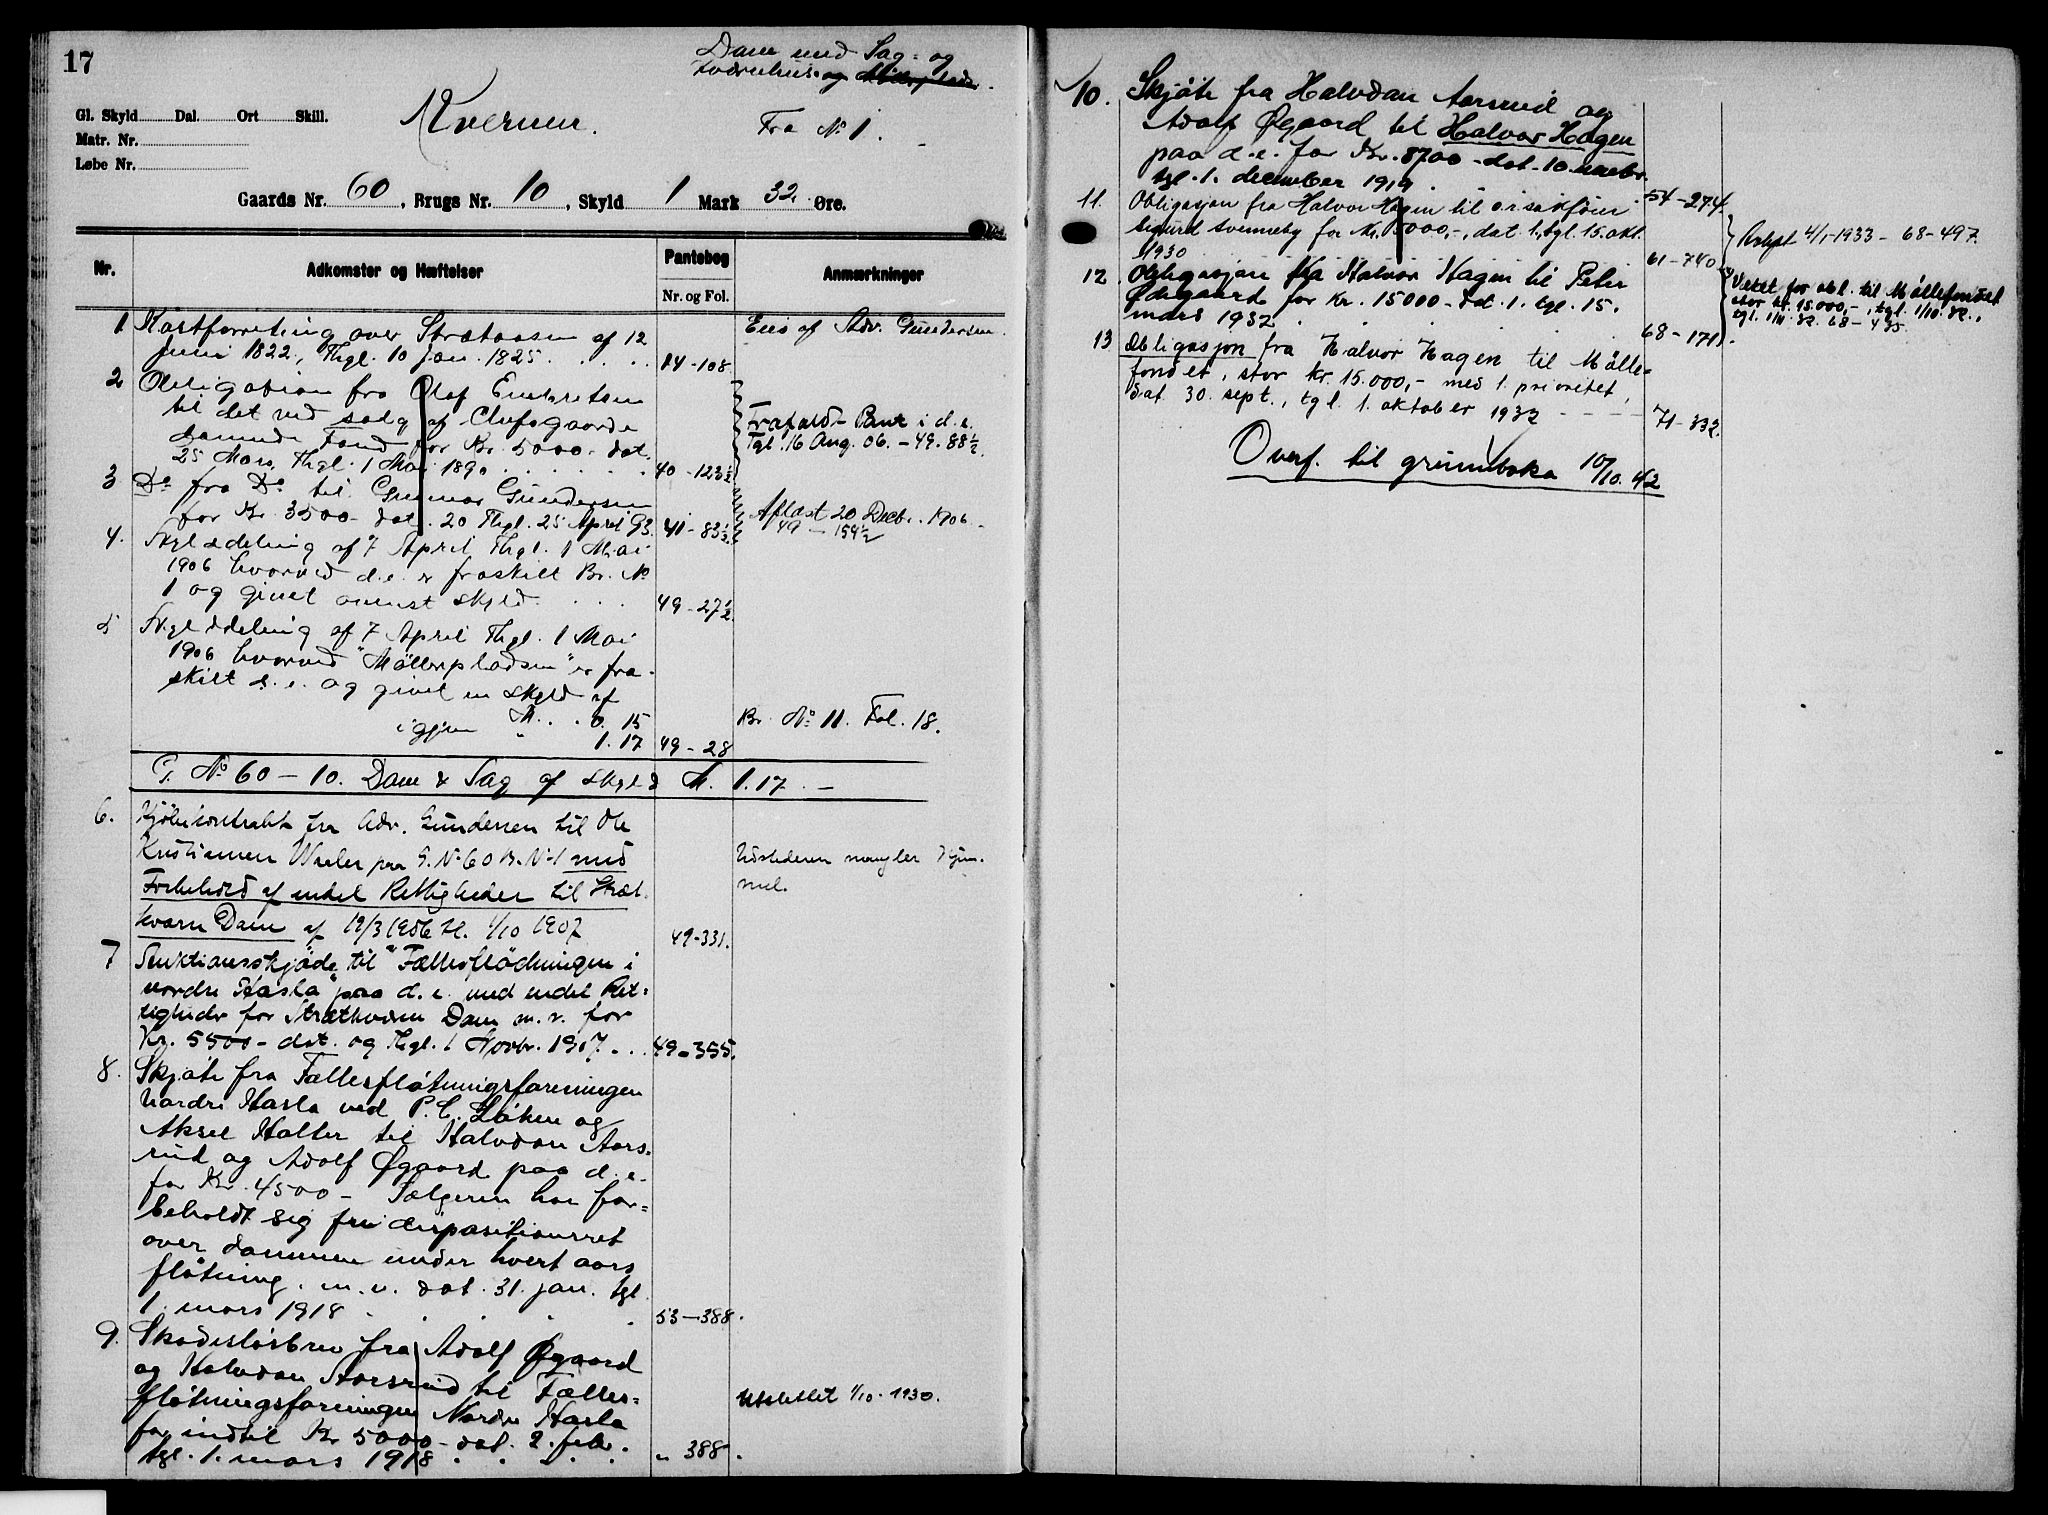 17
Dam med Sag- og
Kværnhus og Möllerpladsen.
Gl. Skyld Dal. Ort Skill.
Kvernen.
Fra No 1.
Matr. Nr.
Løbe Nr.
Gaards Nr. 60, Brugs Nr. 10, Skyld 1 Mark 32 Øre.
Nr.
Adkomster og Hæftelser
Pantebog
Nr. og Fol.
Anmærkninger
1 Kastforretning over Strætaasen af 12
Juni 1822, Thgl. 10 Jan. 1825. 14-108
Eies af Adv. Gundersen.
2 Obligation fra Olaf Embretsen
til det ved salg af Clufsgaarde
dannede Fond for Kr. 5000 dat.
25 Mars, Thgl. 1 Mai 1890 40-123½
Frafaldt Pant i d.e.
Tgl. 16 Aug. 06. - 49. 88½.
3 Do fra Do til Gunnar Gundersen
for Kr. 3500 dat. 20 Thgl. 25 April 93. 41-83½
Aflæst 20 Decb. 1906
49 - 154½
4. Skylddeling af 7 April Thgl. 1 Mai
1906 hvorved d.e. er fraskilt Br. No
1 og givet ovenst skyld. 49-27½
5 Skylddeling af 7 April Thgl. 1 Mai
1906 hvorved "Möllerpladsen" er fra-
skilt d.e. og givet en skyld af
M. 0. 15
Br. No 11. Fol. 18.
igjen " 1.17 49-28
G. No 60 - 10. Dam & Sag af skyld M. 1.17. -
6. Kjöbekontrakt fra Adv. Gundersen til Ole
Kristiansen Waaler paa G. No 60 B. No 1 med
Forbehold af endel Rettigheder til Stræt-
kværn Dam af 12/3 1906 tl. 1/10 1907 49-331.
Udstederen mangler Hjem-
mel.
7 Auktionsskjøde til "Fællesflödningen i
nordre Hasla" paa d.e. med endel Ret-
tigheder for Strætkværn Dam m.v. for
Kr. 5500 - dat. og Thgl. 1 Novbr. 1907. 49-355.
8. Skjøte fra Fællesfløtningsforeningen
Nordre Hasla ved P.C. Løken og
Aksel Holter til Halvdan Aors-
rud og Adolf Øgaard paa d.e.
for Kr. 4500 - Sælgeren har for-
beholdt sig fri disposisionsret
over dammen under hvert aars
fløtning. m.v. dat. 31. jan. tgl.
1. mars 1918 53-388.
9. Skadesløsbrev fra Adolf Øgaard
og Halvdan Aorsrud til Fælles-
fløtningsforeningen Nordre Hasla
for indtil Kr 5000 - dat. 2. febr.
tgl. 1. mars 1918 " 388.
Utslettet 1/10. 1930.
10. Skjøte fra Halvdan Aorsrud og
Adolf Øgaard til Halvor Hagen
paa d.e. for Kr. 8700 - dat. 10. novbr.
tgl. 1. december 1919. 54-274
11. Obligasjon fra Halvor Hagen til o.r.sakfører
Sigurd Svenneby for Kr. 5000,-, dat. 1., tgl. 15. okt.
1930 61-740
Avlyst 4/1-1933 - 68-497.
12. Obligasjon fra Halvor Hagen til Peter
Ødegaard for Kr. 15000 - dat. 1. tgl. 15.
mars 1932 68-171.
Veket for obl. til Møllefondet
stor kr. 15.000,-, tgl. 1/10. 32.,
tgl. 1/11. 32. 68-435.
13 Obligasjon fra Halvor Hagen til Mølle-
fondet, stor kr. 15.000,- med 1. prioritet,
dat. 30. sept., tgl. 1. oktober 1932 71-332.
Overf. til grunnboka 10/10. 42